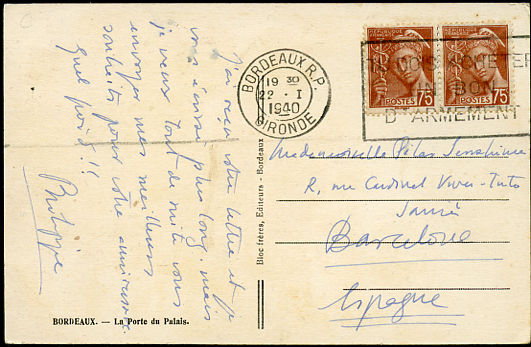 J'ai reçu votre lettre et je
vous écrirai plus long. mais
je veux tout de suite vous
envoyer mes meilleurs
souhaits pour votre anniversaire.
Quel poids!!
Philippe
BORDEAUX R.P.
19 30
22 - I
1940
GIRONDE
RÉPUBLIQUE FRANÇAISE
POSTES 75
RÉPUBLIQUE FRANÇAISE
POSTES 75
UN BON
D'ARMEMENT
Mademoiselle Pilar
R, rue Cardinal Vives-Tuto
Barcelone
Espagne
Bloc frères, Editeurs - Bordeaux
BORDEAUX. — La Porte du Palais.